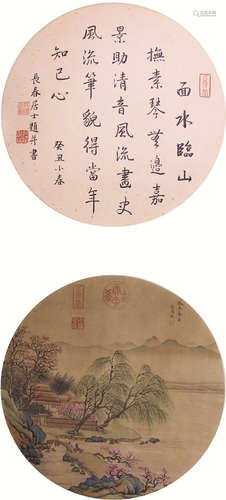 面水臨山
撫素琴無邊嘉
景助清音風流畫史
風流筆貌得當年
知己心
癸丑小春
長春居士題并書